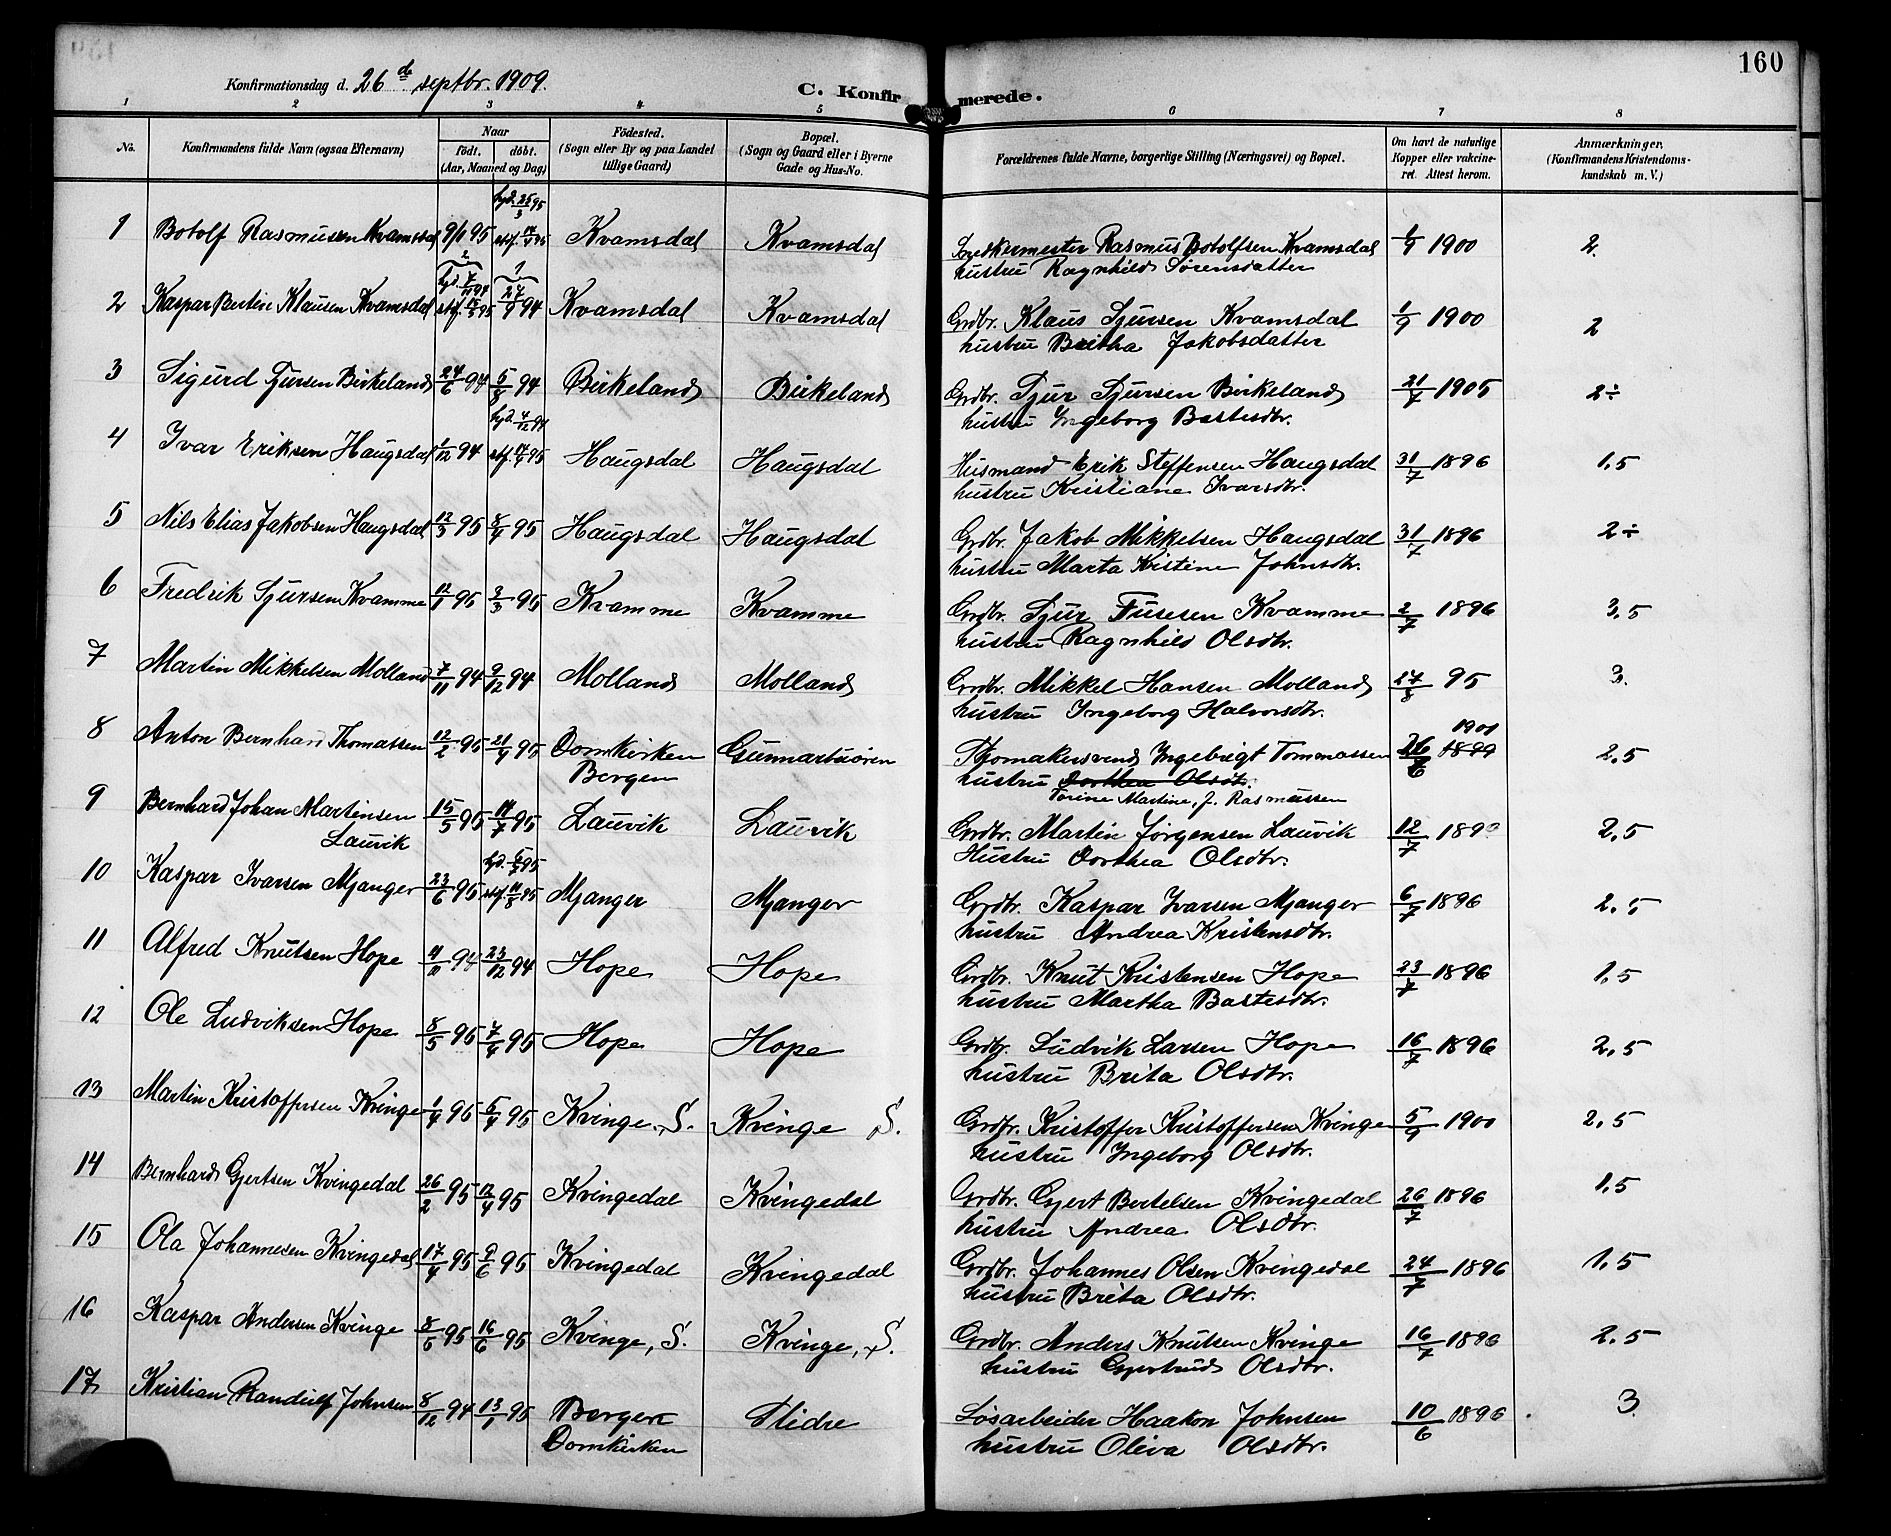 160
Konfirmationsdag d. 26de septbr. 1909.
C. Konfirmerede.
1 2 3 4 5 6 7 8
No. Konfirmandens fulde Navn (ogsaa Efternavn) Naar födt. döbt. (Aar, Maaned og Dag) Födested. (Sogn eller By og paa Landet tillige Gaard) Bopæl. (Sogn og Gaard eller i Byerne Gade og Hus-No. Forældrenes fulde Navne, borgerlige Stilling (Næringsvei) og Bopæl. Om havt de naturlige Kopper eller vakcineret. Attest herom. Anmærkninger. (Konfirmandens Kristendomskundskab m. V.)
hjd. 25/3 95
1 Botolf Rasmussen Kvamsdal 9/1 95 stf. 14/4 95 Kvamsdal Kvamsdal Snedkermester Rasmus Botolfsen Kvamsdal 1/9 1900 2.
hustru Ragnhild Sørensdatter
2 Kaspar Bertin Klausen Kvamsdal 27/9 94 Kvamsdal Kvamsdal Grdbr. Klaus Sjursen Kvamsdal 1/9 1900 2
hustru Britha Jakobsdatter
3 Sigurd Sjursen Birkeland 24/6 94 5/8 94 Birkeland Birkeland Grdbr. Sjur Sjursen Birkeland 21/7 1905 2÷
hustru Ingeborg Bastesdtr.
hjd. 4/12 94
4 Ivar Eriksen Haugsdal 1/12 94 stf. 14/4 95 Haugsdal Haugsdal Husmand Erik Steffensen Haugsdal 31/7 1896 1.5
hustru Kristiane Ivarsdtr.
5 Nils Elias Jakobsen Haugsdal 12/3 95 8/4 95 Haugsdal Haugsdal Grdbr. Jakob Mikkelsen Haugsdal 31/7 1896 2÷
hustru Marta Kistine Johnsdtr.
6 Fredrik Sjursen Kvamme 12/1 95 3/3 95 Kvamme Kvamme Grdbr. Sjur Fusesen Kvamme 2/7 1896 3.5
hustru Ragnhild Olsdtr.
7 Martin Mikkelsen Molland 7/11 94 9/12 94 Molland Molland Grdbr. Mikkel Hansen Molland 95 3.
hustru Ingeborg Halvorsdtr.
1901
8 Anton Bernhard Thomassen 12/2 95 21/4 95 Domkirken Gunnartuøren Skomakersvend Ingebrigt Tommassen 26/6 1899 2.5
Bergen hustru Dorthea Olsdtr.
Torine Martine, f. Rasmussen
9 Bernhard Johan Martinsen 15/5 95 14/7 95 Lauvik Lauvik Grdbr. Martin Jørgensen Lauvik 12/7 2.5
Lauvik Hustru Dorthea Olsdtr.
10 Kaspar Ivarsen Mjanger 23/6 95 stf. 11/8 95 Mjanger Mjanger Grdbr. Kaspar Ivarsen Mjanger 6/7 1896 2.5
hustru Andrea Kristensdtr.
11 Alfred Knutsen Hope 11/11 94 23/12 94 Hope Hope Grdbr. Knut Kristensen Hope 23/7 1896 1.5
hustru Martha Bastesdtr.
12 Ole Ludviksen Hope 8/5 95 7/4 95 Hope Hope Grdbr. Ludvik Larsen Hope 16/7 1896 2.5
hustru Brita Olsdtr.
13 Martin Kristoffersen Kvinge 1/4 95 5/4 95 Kvinge, S. Kvinge S. Grdbr. Kristoffer Kristoffersen Kvinge 5/9 1900 2.5
hustru Ingeborg Olsdtr.
14 Bernhard Gjertsen Kvingedal 26/2 95 12/4 95 Kvingedal Kvingedal Grdbr. Gjert Bertelsen Kvingedal 26/7 1896 1.5
hustru Andrea Olsdtr.
15 Ola Johannesen Kvingedal 17/4 95 9/6 95 Kvingedal Kvingedal Grdbr. Johannes Olsen Kvingedal 24/7 1896 1.5
hustru Brita Olsdtr.
16 Kaspar Andersen Kvinge 8/5 95 16/6 95 Kvinge, S. Kvinge, S. Grdbr. Anders Knutsen Kvinge 16/7 1896 2.5
hustru Gjertrud Olsdtr.
17 Kristian Randulf Johnsen 8/12 94 13/1 95 Bergen Slidre Løsarbeider Haakon Johnsen 10/6 1896 3
Domkirken hustru Oliva Olsdtr.